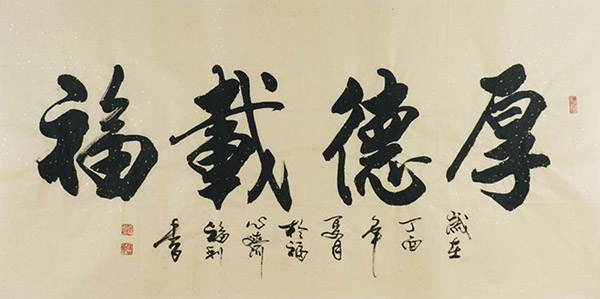 厚德載福
歲在
丁酉
年
夏月
於福
心齋
福利
書